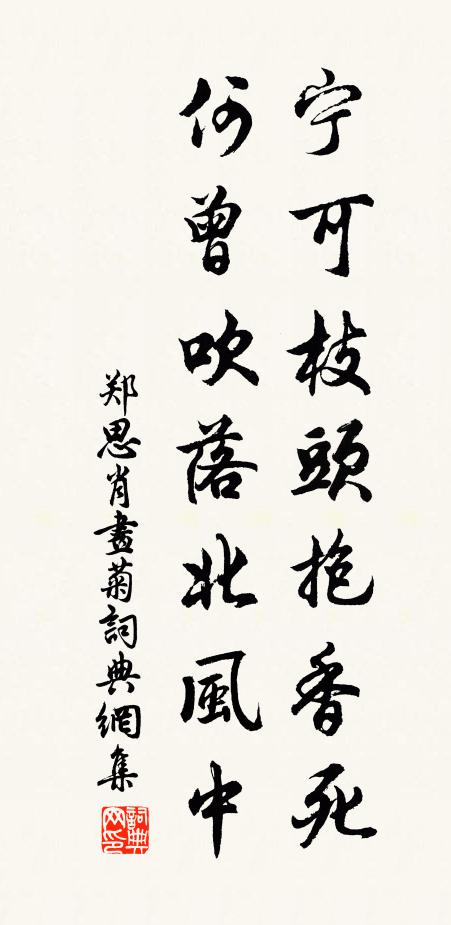 宁可枝頭抱香死
何曾吹落北風中
郑思肖畫菊詞典網集
詞典
网印